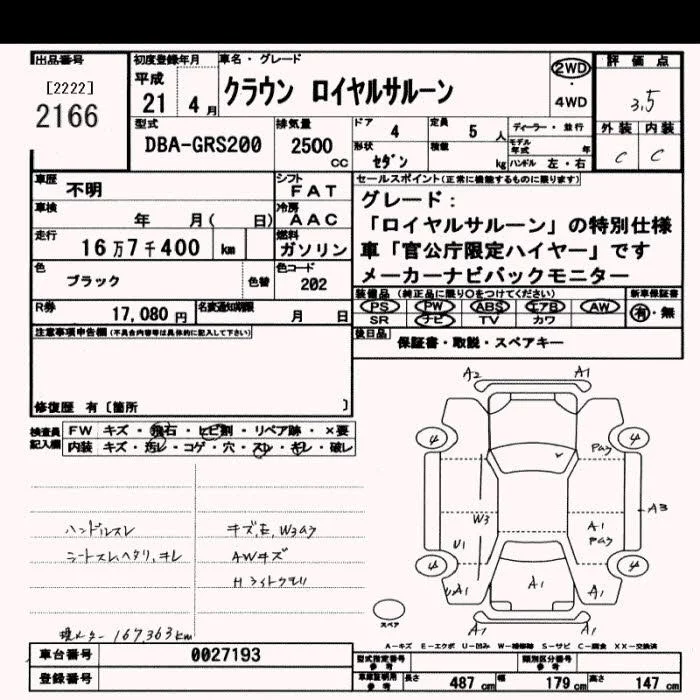 出品番号
[2222]
2166
初度登録年月
平成
21 4月
車名・グレード
クラウン ロイヤルサルーン
2WD
・
4WD
評価点
3.5
外装 内装
C C
型式
DBA-GRS200
排気量
2500
cc
ドア 4
定員 5人
形状
セダン
積載 kg
ディーラー・並行
モデル年式 年
ハンドル 左・右
車歴 不明
シフト
FAT
車検 年 月( 日)
冷房
AAC
走行 16万7千400 km
燃料
ガソリン
色
ブラック
色替
色コード
202
R券
17,080円
名変通知期限
月 日
セールスポイント(正常に機能するものに限ります)
グレード:
「ロイヤルサルーン」の特別仕様
車「官公庁限定ハイヤー」です
メーカーナビバックモニター
装備品(純正品に限り○をつけてください)
新車保証書
PS PW ABS エアB AW
SR ナビ TV カワ
有・無
後日品
保証書・取説・スペアキー
注意事項申告欄(不具合内容等は具体的に記入して下さい)
修復歴 有〔箇所 〕
検査員記入欄
FW キズ・飛石・ヒビ割・リペア跡・×要
内装 キズ・汚レ・コゲ・穴・スレ・キレ・破レ
ハンドルスレ
シートスレ,ヘタリ,キレ
キズ,E,W3あり
AWキズ
Hライトクモリ
現メーター 167,363km
A2 A1
4 4
Pあり
A3
W3
A1
Pあり
U1
4 4
UA1
A1
A1
A1 A1
スペア
A-キズ E-エクボ U-凹み W-補修跡 S-サビ C-腐食 XX-交換済
車台番号 0027193
登録番号
型式指定番号
参考
類別区分番号
参考
車庫証明用
参考
長さ 487cm 幅 179cm 高さ 147cm